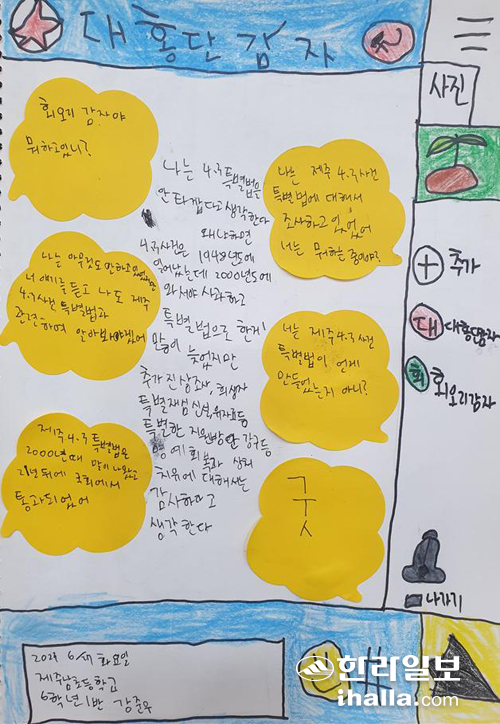 대홍단감자
회오리 감자야
뭐하고있니?
나는 제주 4.3사건
특별법에 대해서
조사하고 있었어
너는 뭐하는 중이야?
나는 아무것도 안하고있었는데
너 얘기를 듣고 나도 제주
4.3사건 특별법과
관련하여 알아봐야겠어
너는 제주4.3사건
특별법이 언제
만들었는지 아니?
제주4.3특별법은
2000년때 많이 나왔고
21년뒤에 국회에서
통과되었어
ㄱㅜㅅ
나는 4.3특별법을
안타깝다고생각한다
왜냐하면
4.3사건은 1948년도에
일어났는데 2000년도에
와서야 사과하고
특별법으로 한게
많이 늦었지만
추가진상조사, 희생자
특별재심신설, 위자료등
특별한 지원방안 강구등
명예회복과 상처
치유에 대해서는
감사하다고
생각한다
사진
추가
대 대홍단감자
회 회오리감자
나가기
화요일
제주남초등학교
6학년1반 강준우
한라일보
ihalla.com